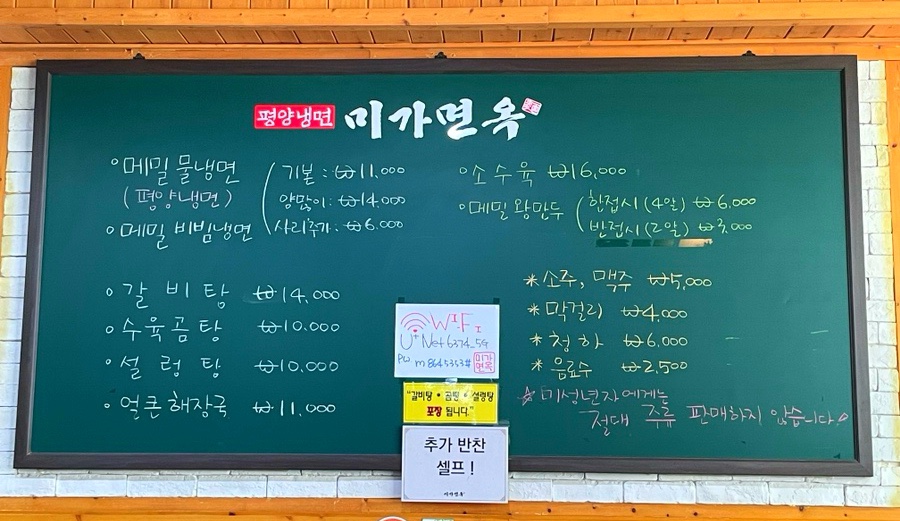 평양냉면 미가면옥
•메밀 물냉면
(평양냉면)
•메밀 비빔냉면
기본 : ₩11,000
양많이 : ₩14,000
사리추가 : ₩6.000
•갈비탕 ₩14,000
•수육곰탕 ₩10.000
•설렁탕 ₩10,000
•얼큰해장국 ₩11,000
•소수육 ₩16,000
•메밀 왕만두
한접시(4알) ₩6,000
반접시(2알) ₩3,000
*소주, 맥주 ₩5,000
*막걸리 ₩4,000
*청하 ₩6,000
*음료수 ₩2,500
☆미성년자에게는
절대 주류 판매하지 않습니다!
WiFi
U+Net6374_5G
PW. m8645353#
미가면옥
"갈비탕 • 곰탕 • 설렁탕
포장 됩니다."
추가 반찬
셀프 !
미가면옥